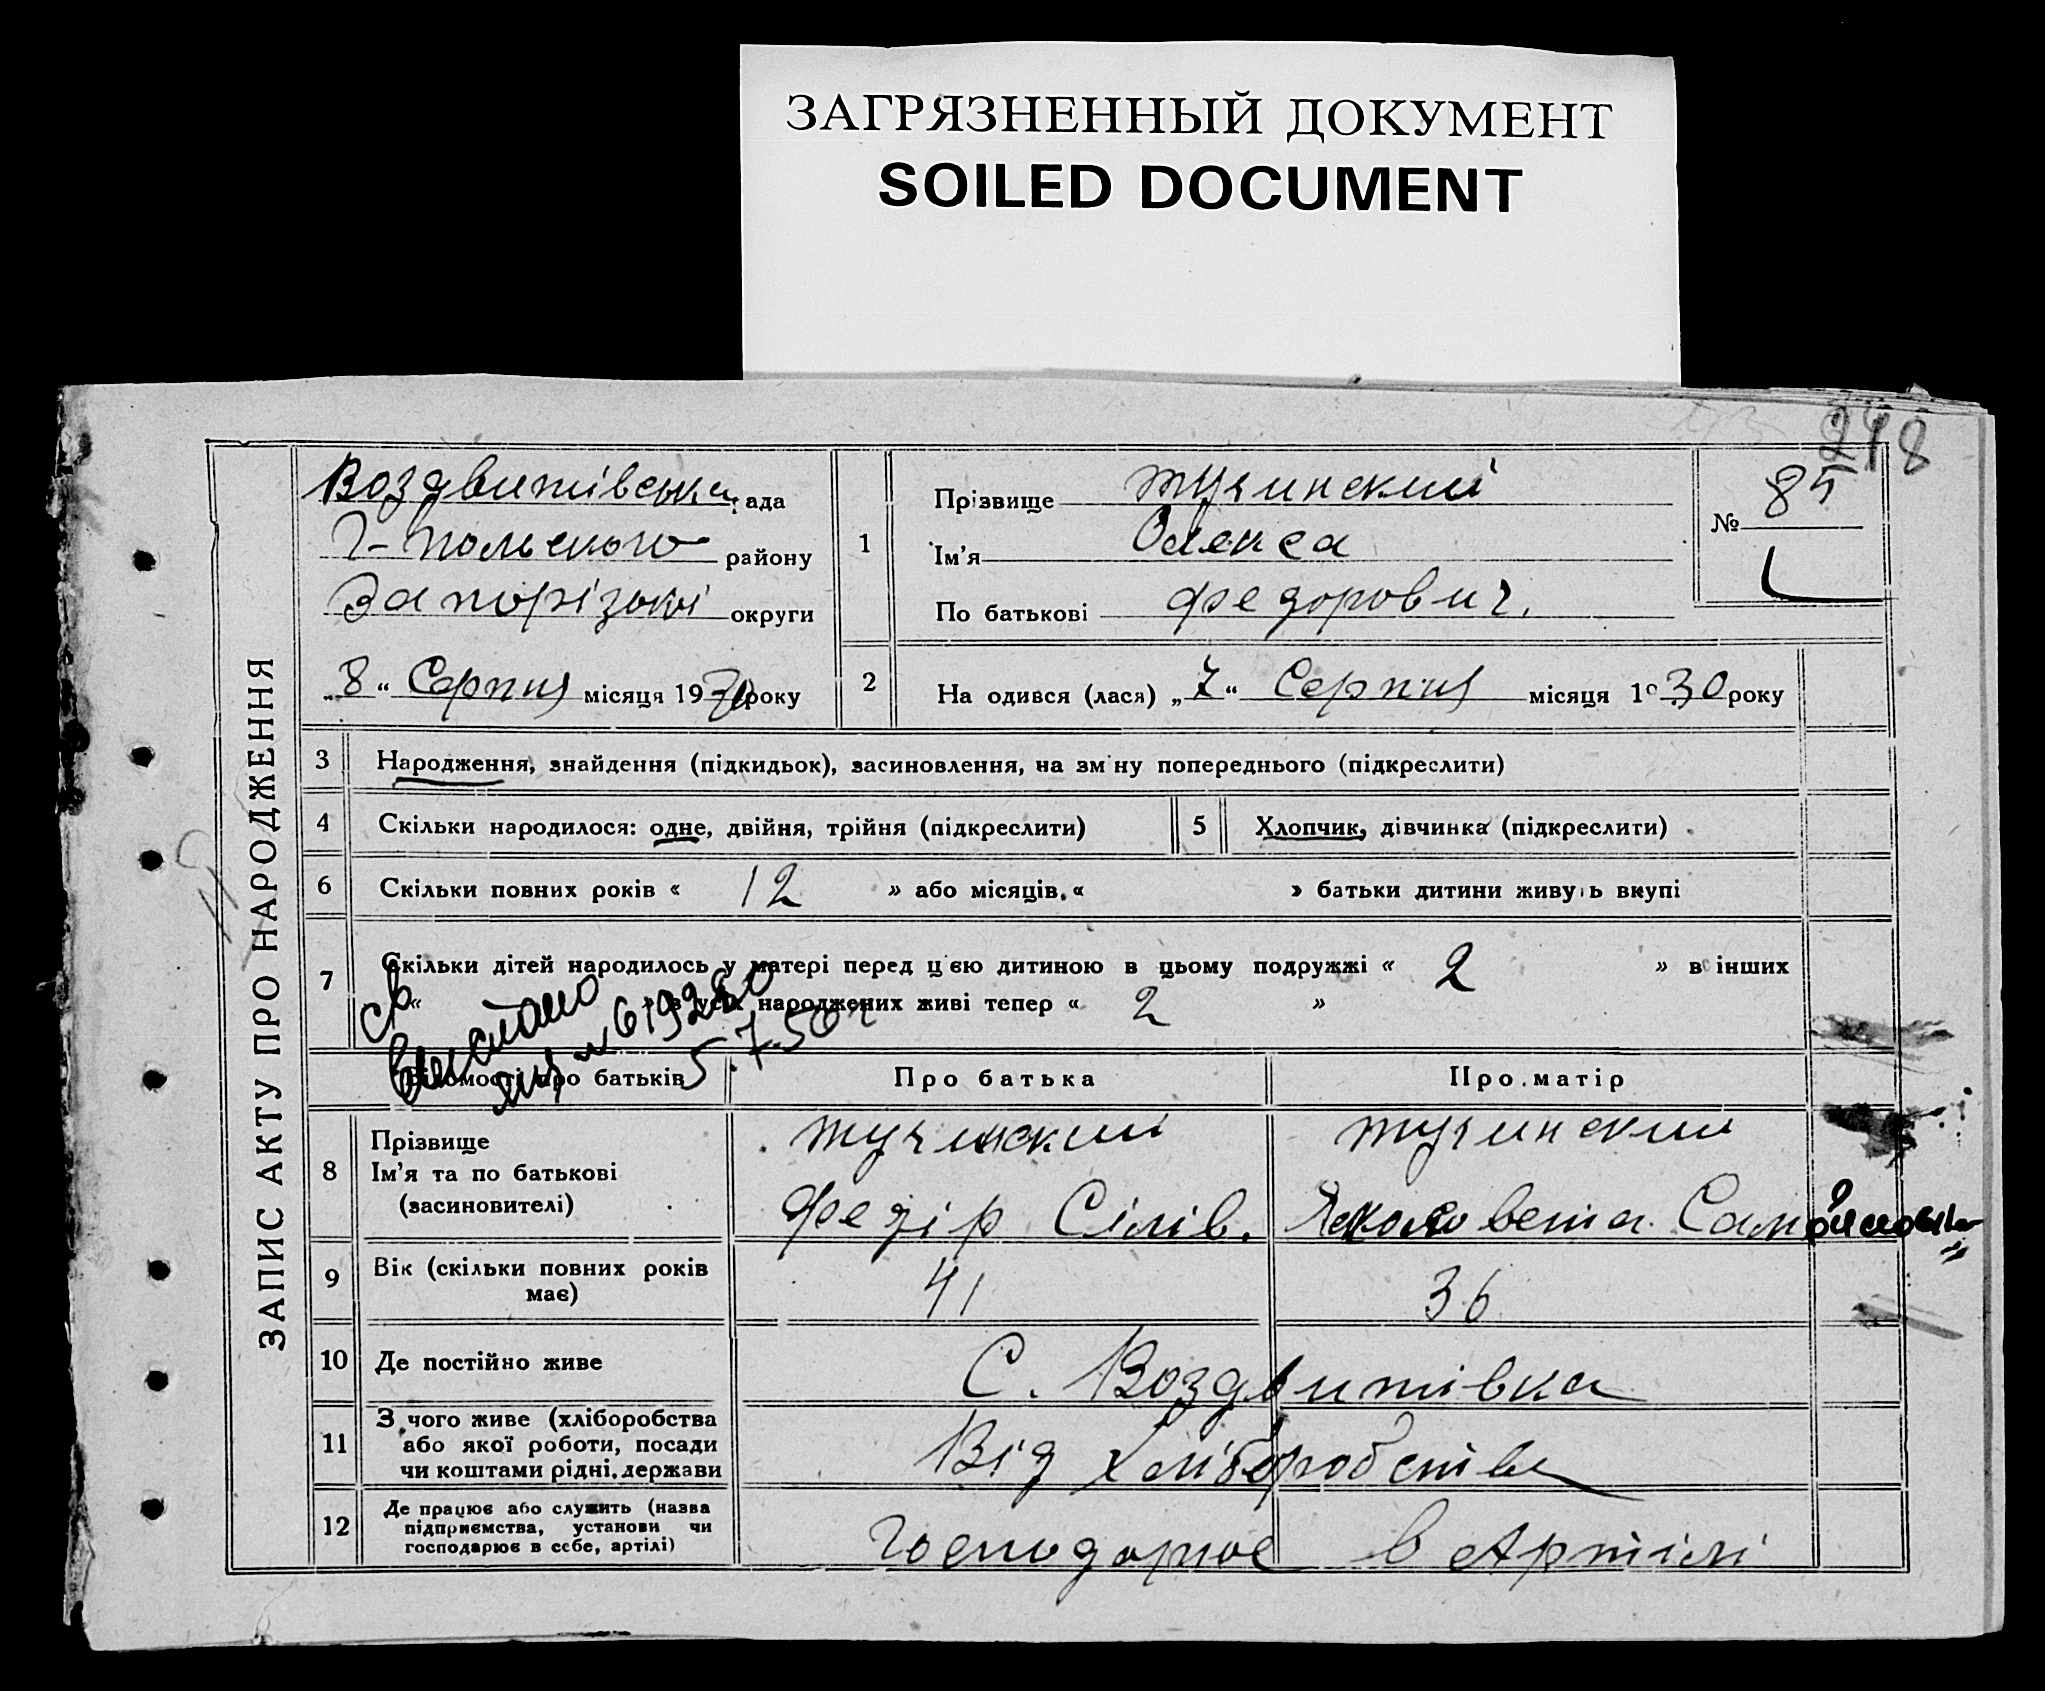 ЗАГРЯЗНЕННЫЙ ДОКУМЕНТ
SOILED DOCUMENT
298
ЗАПИС АКТУ ПРО НАРОДЖЕННЯ
Воздвитівська рада
Г-Польского району
Запорізькиі округи
„8“ Серпня місяця 1930 року
1
Прізвище Тучинский
Ім'я Олекса
По батькові Федорович.
№ 85
2 На одився (лася) „7“ Серпня місяця 1930 року
3 Народження, знайдення (підкидьок), засиновлення, на зм ну попереднього (підкреслити)
4 Скільки народилося: одне, двійня, трійня (підкреслити) 5 Хлопчик, дівчинка (підкреслити)
6 Скільки повних років « 12 » або місяців. « » батьки дитини живуть вкупі
7 Скільки дітей народилось у матері перед цією дитиною в цьому подружжі « 2 » в інших
« » в усіх народжених живі тепер « 2 »
св
выслано
№ 619280
5.7.50 г
Відомості про батьків Про батька Про матір
8 Прізвище
Ім'я та по батькові
(засиновителі)
Тучинский Тучинский
Федір Сілів. вета Самойловна
9 Вік (скільки повних років
має)
41 36
10 Де постійно живе С. Воздвитівка
11 З чого живе (хліборобства
або якої роботи, посади
чи коштами рідні, держави
Від хліборобства
12 Де працює або служить (назва
підприємства, установи чи
господарює в себе, артілі)
Господарює в Артілі